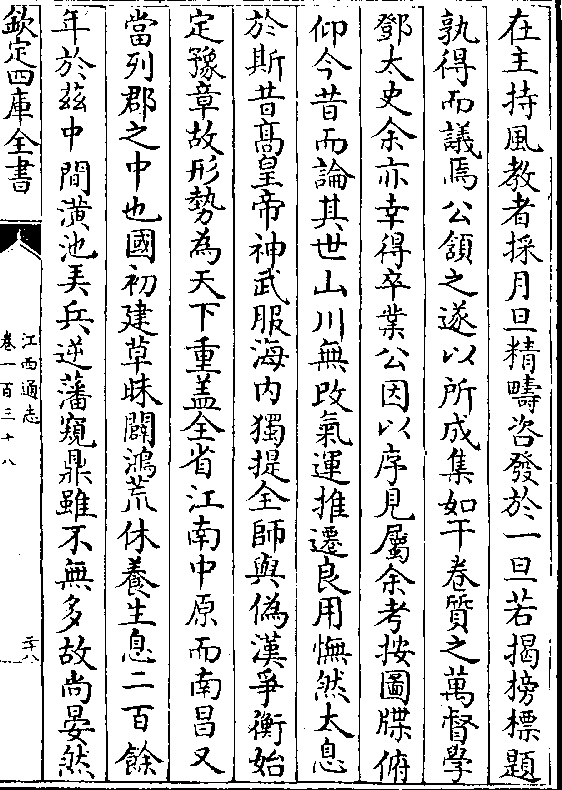 在主持風教者採月旦精疇咨發於一旦若揭榜標題
孰得而議焉公頷之遂以所成集如干卷質之萬督學
鄧太史余亦幸得卒業公因以序見屬余考按圖牒俯
仰今昔而論其世山川無改氣運推遷良用憮然太息
於斯昔髙皇帝神武服海内獨提全師與偽漢爭衡始
定豫章故形勢為天下重盖全省江南中原而南昌又
當列郡之中也國初建草昧闢鴻荒休養生息二百餘
年於茲中間潢池弄兵逆藩窺鼎雖不無多故尚晏然
欽定四庫全書
江西通志
卷一百三十八
二十八